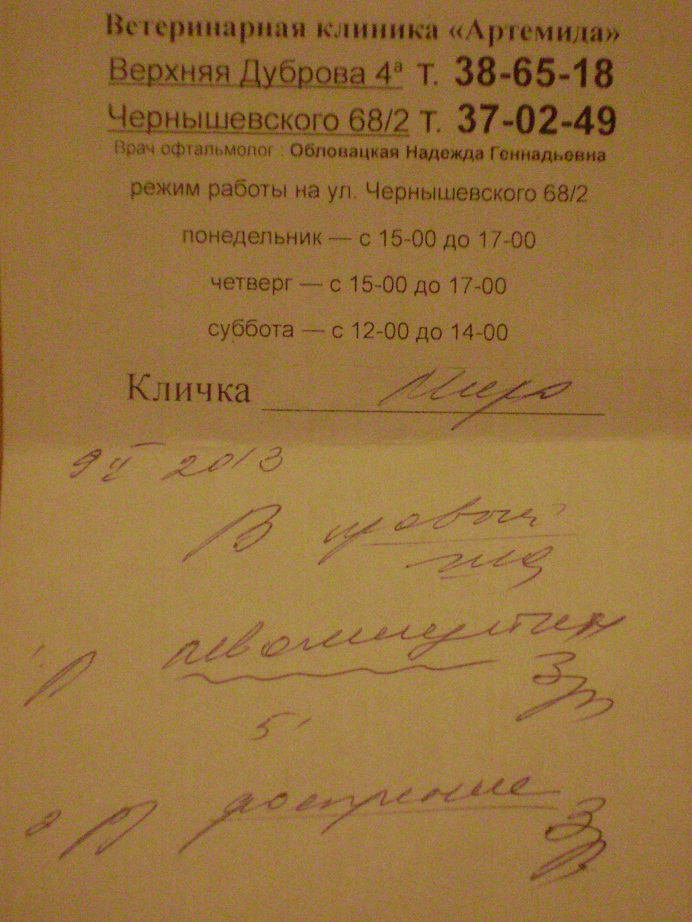 Ветеринарная клиника «Артемида»
Верхняя Дуброва 4ª т. 38-65-18
Чернышевского 68/2 т. 37-02-49
Врач офтальмолог : Обловацкая Надежда Геннадьевна
режим работы на ул. Чернышевского 68/2
понедельник — с 15-00 до 17-00
четверг — с 15-00 до 17-00
суббота — с 12-00 до 14-00
Кличка
9 V 2013
В правый
глаз
левомицетин
3 р
5'
3 р